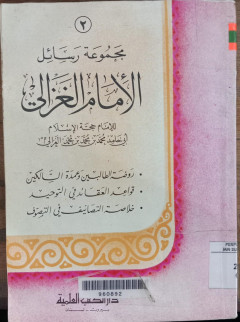 ٢
مجموعة رسائل
الإمام الغزالي
للإمام حجة الإسلام
أبي حامد محمد بن محمد بن محمد الغزالي
• روضة الطالبين وعمدة السالكين
• قواعد العقائد في التوحيد
• خلاصة التصانيف في التصوف
960892
دار الكتب العلمية